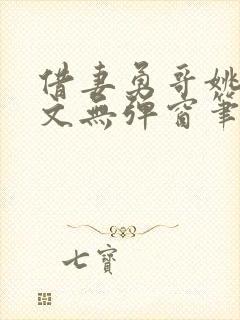 借妻勇哥姚
文無彈窗筆
七寶